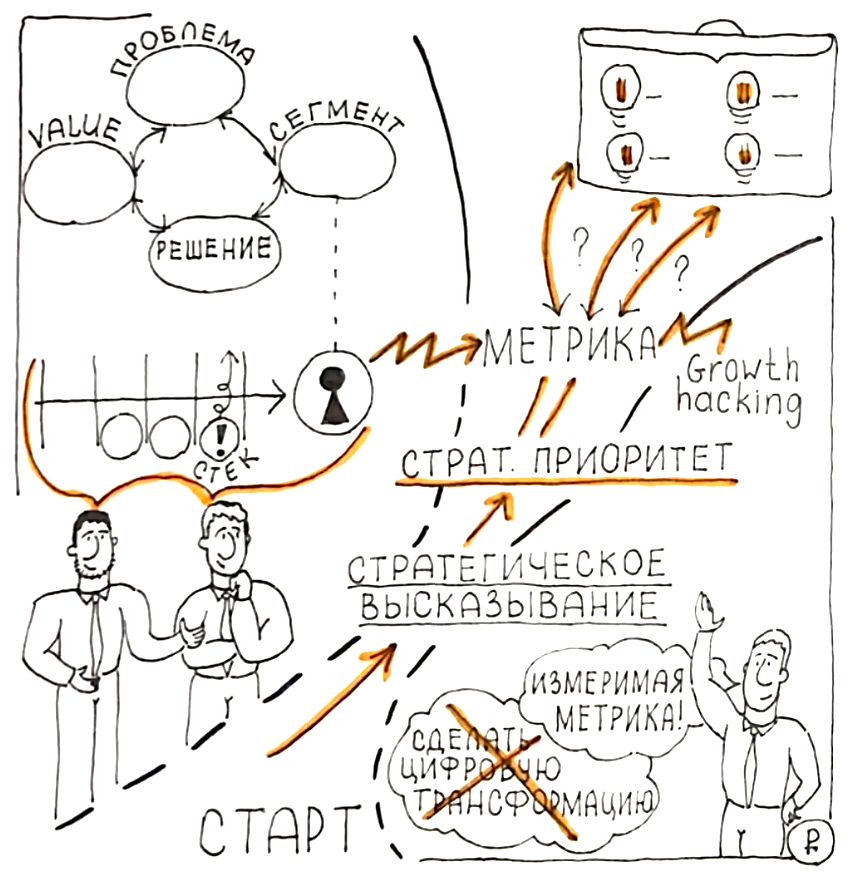 ПРОБЛЕМА
VALUE
СЕГМЕНТ
РЕШЕНИЕ
?
?
?
МЕТРИКА
Growth
hacking
!
СТЕК
СТРАТ. ПРИОРИТЕТ
СТРАТЕГИЧЕСКОЕ
ВЫСКАЗЫВАНИЕ
ИЗМЕРИМАЯ
МЕТРИКА!
СДЕЛАТЬ
ЦИФРОВУЮ
ТРАНСФОРМАЦИЮ
СТАРТ